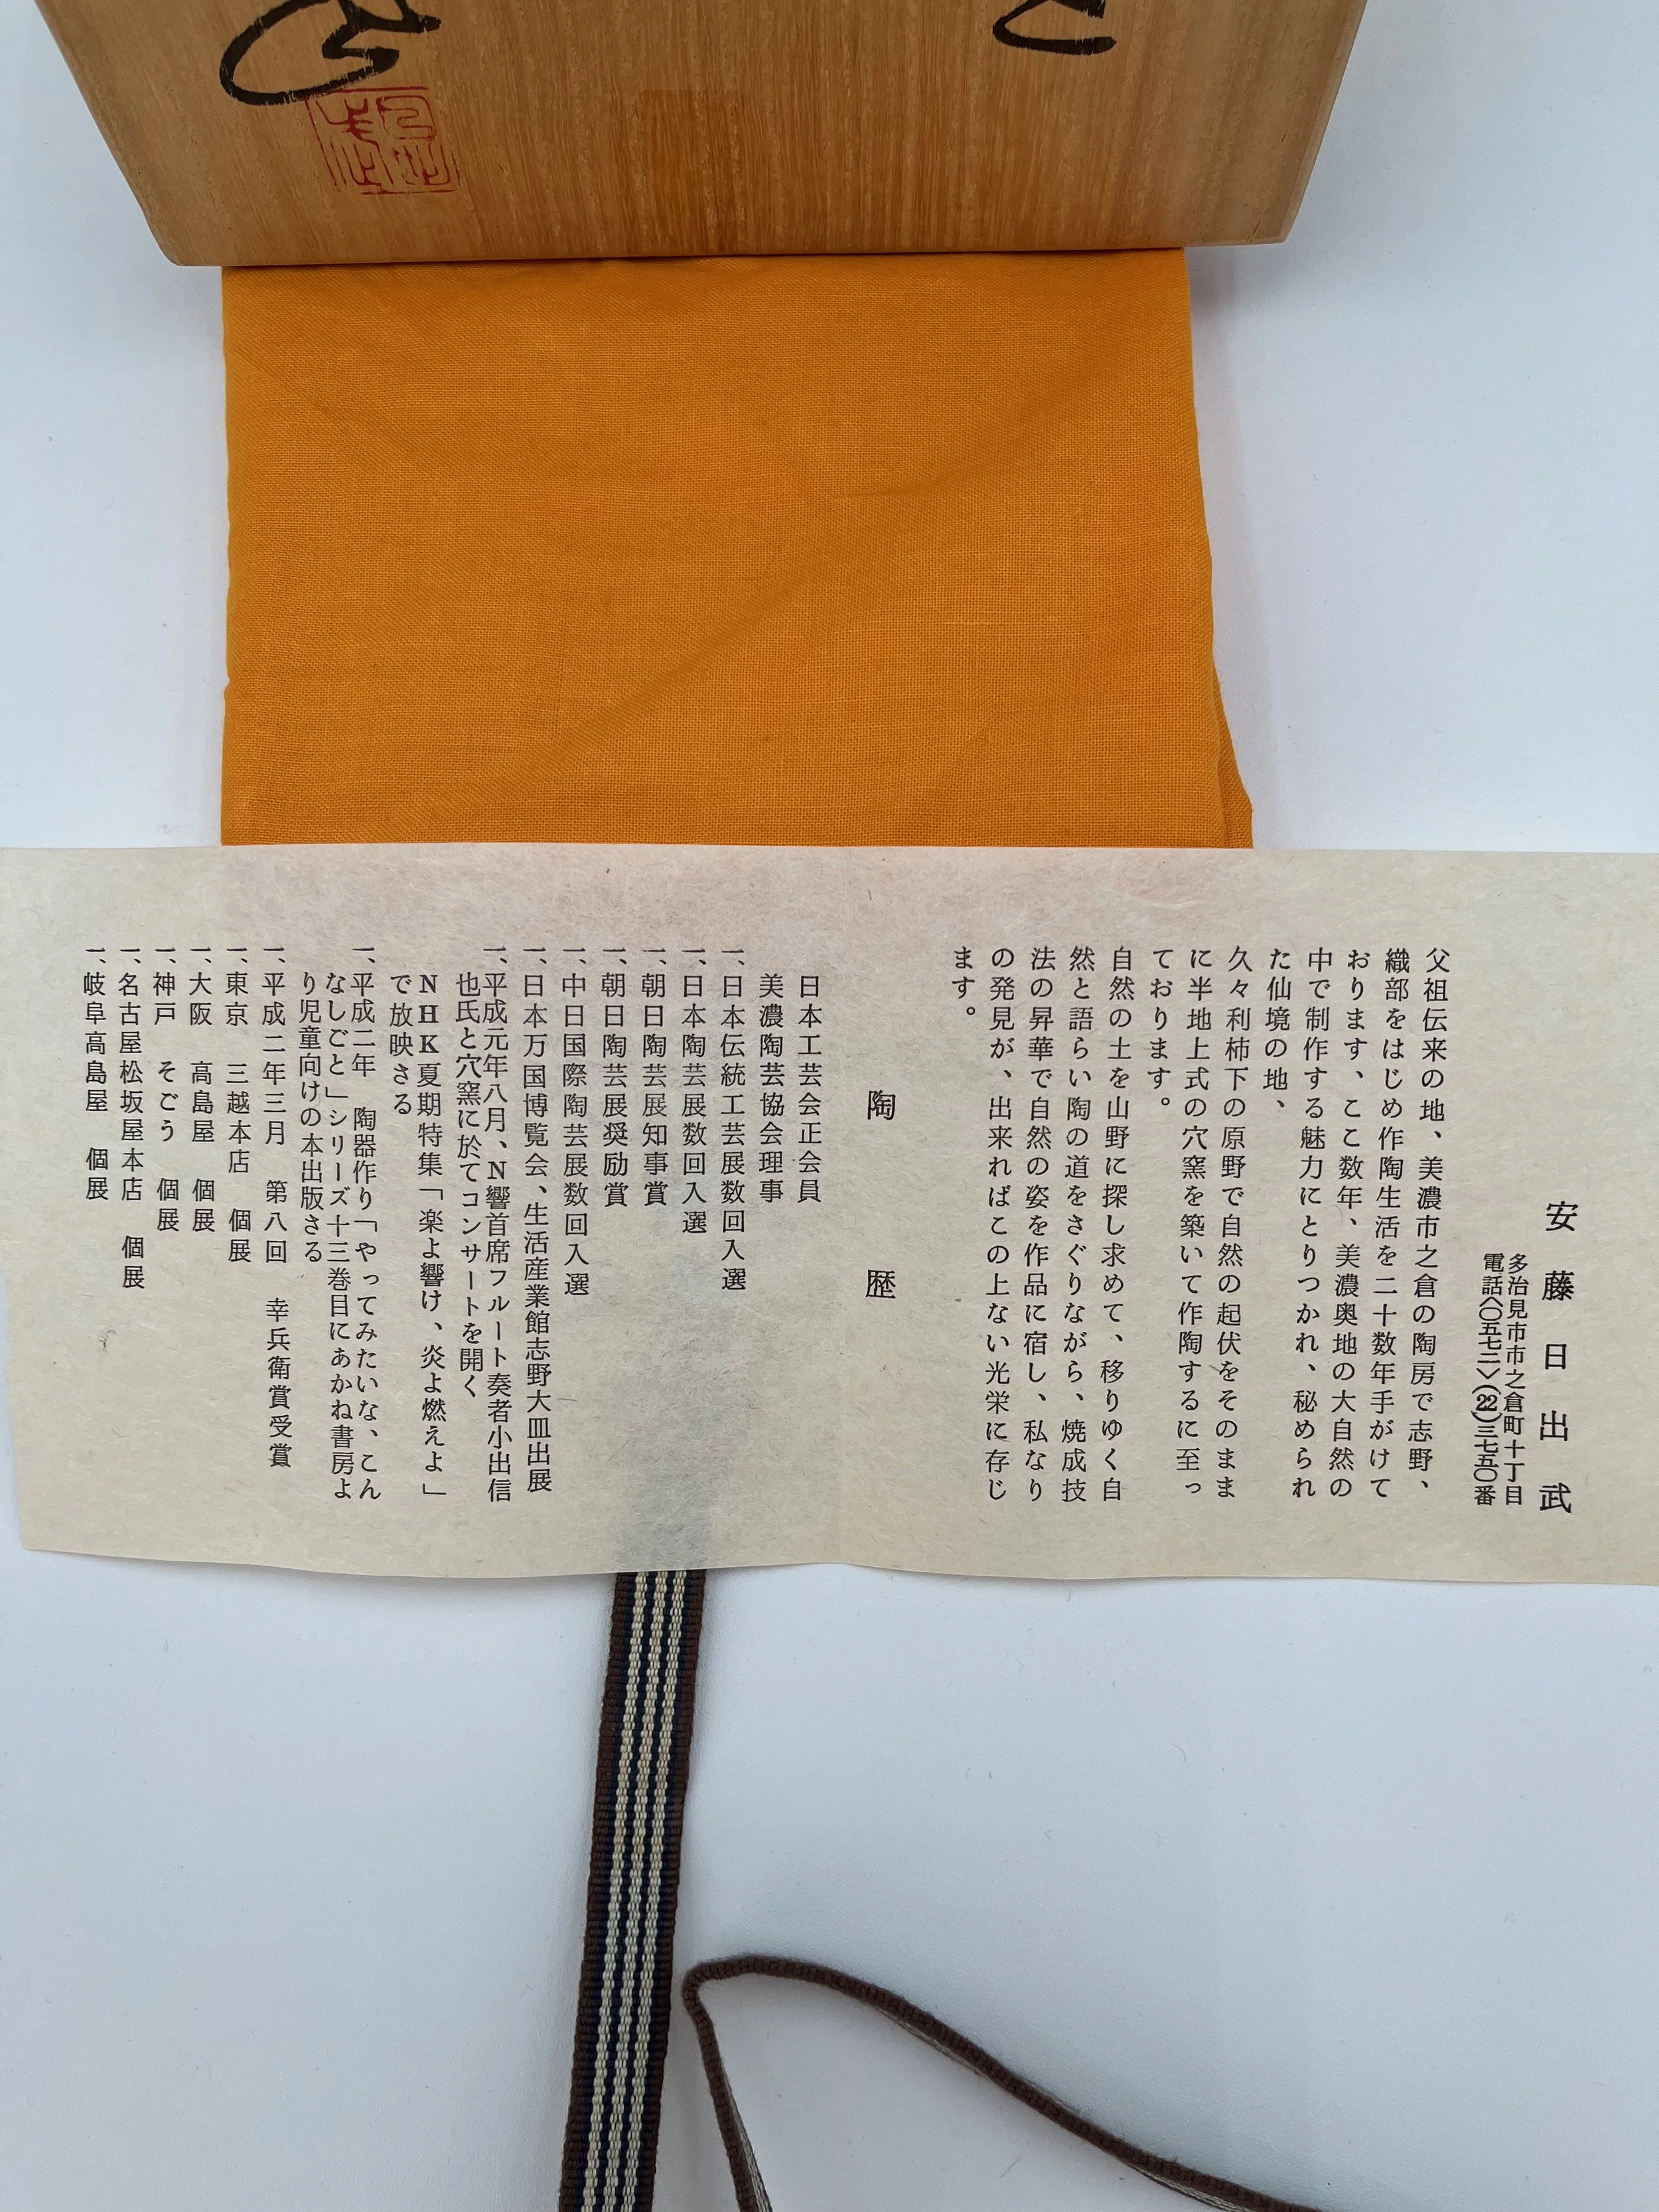 安藤日出武
多治見市市之倉町十丁目
電話〈〇五七二〉(22)三七五〇番
父祖伝来の地、美濃市之倉の陶房で志野、
織部をはじめ作陶生活を二十数年手がけて
おります、ここ数年、美濃奥地の大自然の
中で制作する魅力にとりつかれ、秘められ
た仙境の地、
久々利柿下の原野で自然の起伏をそのまま
に半地上式の穴窯を築いて作陶するに至っ
ております。
自然の土を山野に探し求めて、移りゆく自
然と語らい陶の道をさぐりながら、焼成技
法の昇華で自然の姿を作品に宿し、私なり
の発見が、出来ればこの上ない光栄に存じ
ます。
陶歴
日本工芸会正会員
美濃陶芸協会理事
一、日本伝統工芸展数回入選
一、日本陶芸展数回入選
一、朝日陶芸展知事賞
一、朝日陶芸展奨励賞
一、中日国際陶芸展数回入選
一、日本万国博覧会、生活産業館志野大皿出展
一、平成元年八月、N響首席フルート奏者小出信
也氏と穴窯に於てコンサートを開く
NHK夏期特集「楽よ響け、炎よ燃えよ」
で放映さる
一、平成二年 陶器作り「やってみたいな、こん
なしごと」シリーズ十三巻目にあかね書房よ
り児童向けの本出版さる
一、平成二年三月 第八回 幸兵衛賞受賞
一、東京 三越本店 個展
一、大阪 高島屋 個展
一、神戸 そごう 個展
一、名古屋松坂屋本店 個展
一、岐阜高島屋 個展